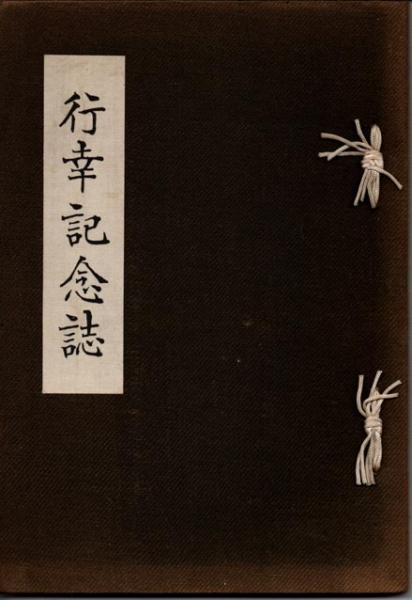 行幸記念誌